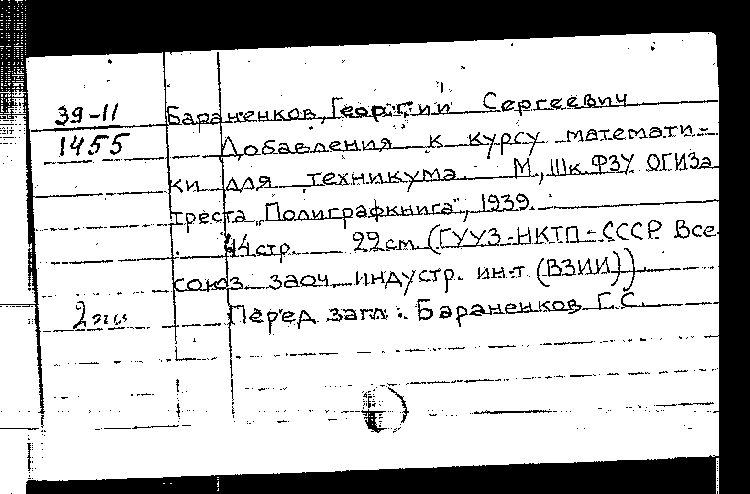 39-11 Бараненков, Георгий Сергеевич
1455 Добавления к курсу математи-
ки для техникума. М., Шк. ФЗУ ОГИЗа
треста „Полиграфкнига", 1939.
44 стр. 22 см (ГУУЗ-НКТП-СССР. Все
союз. заоч. индустр. ин-т (ВЗИИ))
Перед загл.: Бараненков Г.С.